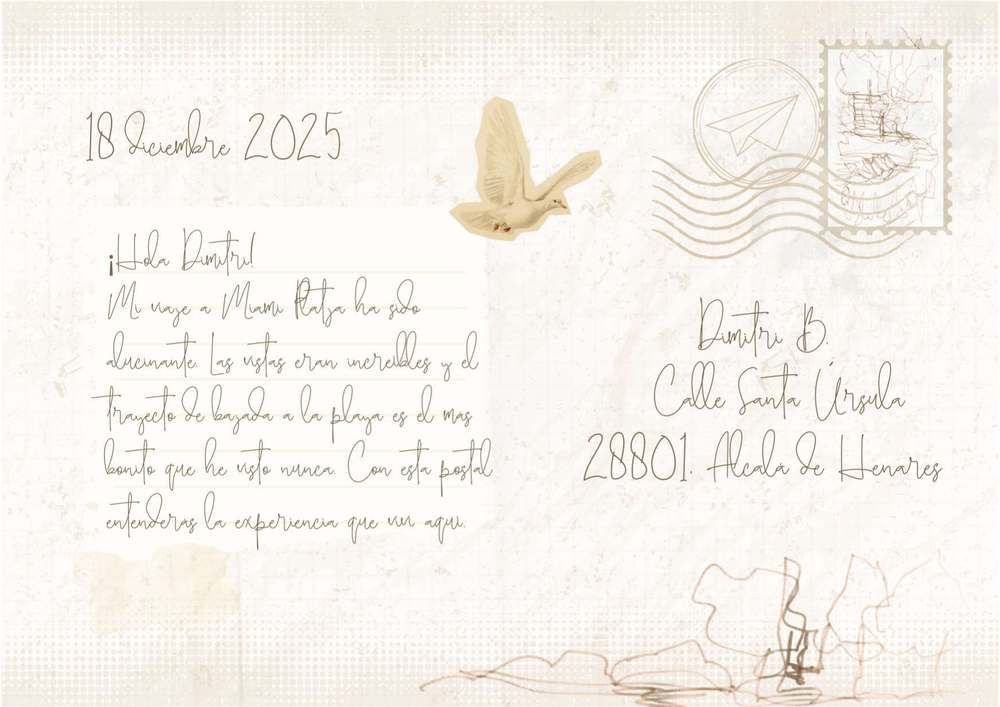 18 diciembre 2025
¡Hola Dimitri!
Mi viaje a Miami Platja ha sido
alucinante. Las vistas eran increíbles y el
trayecto de bajada a la playa es el más
bonito que he visto nunca. Con esta postal
entenderás la experiencia que viví aquí.
Dimitri B.
Calle Santa Úrsula
28801. Alcalá de Henares